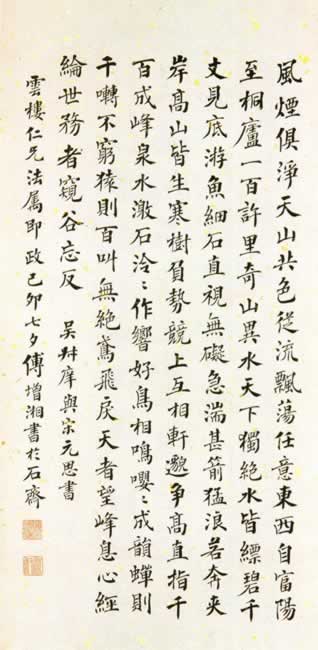 風煙俱淨天山共色從流飄蕩任意東西自富陽
至桐廬一百許里奇山異水天下獨絕水皆縹碧千
丈見底游魚細石直視無礙急湍甚箭猛浪若奔夾
岸髙山皆生寒樹負勢競上互相軒邈爭髙直指千
百成峰泉水激石泠〻作響好鳥相鳴嚶〻成韻蟬則
千囀不窮猿則百叫無絕鳶飛戾天者望峰息心經
綸世務者窺谷忘反 吳叔庠與宋元思書
雲樓仁兄法属即政己卯七夕傅增湘書於石齋